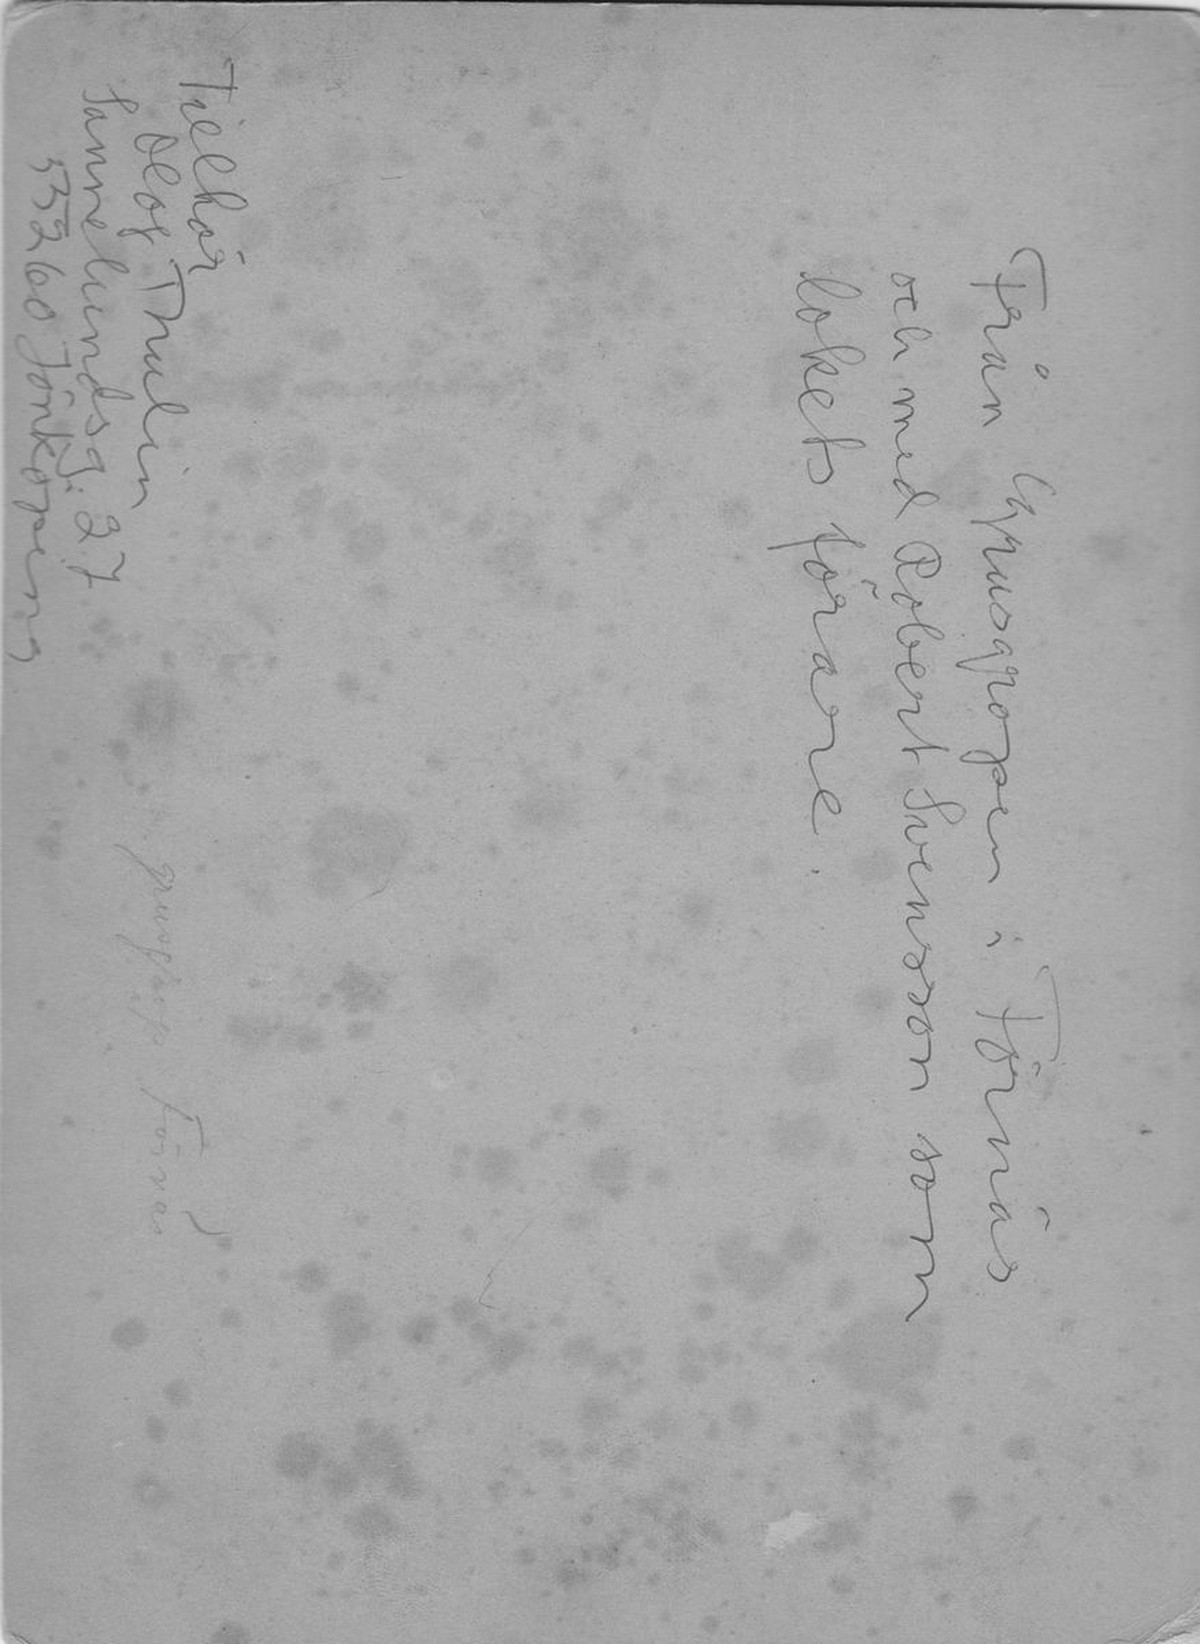 Från Grusgropen i Törnås
och med Robert Svensson som
lokets förare.
Tillhör
Olof Thulin
Sannelundsg. 27
55260 Jönköping
grusgrop Törnås